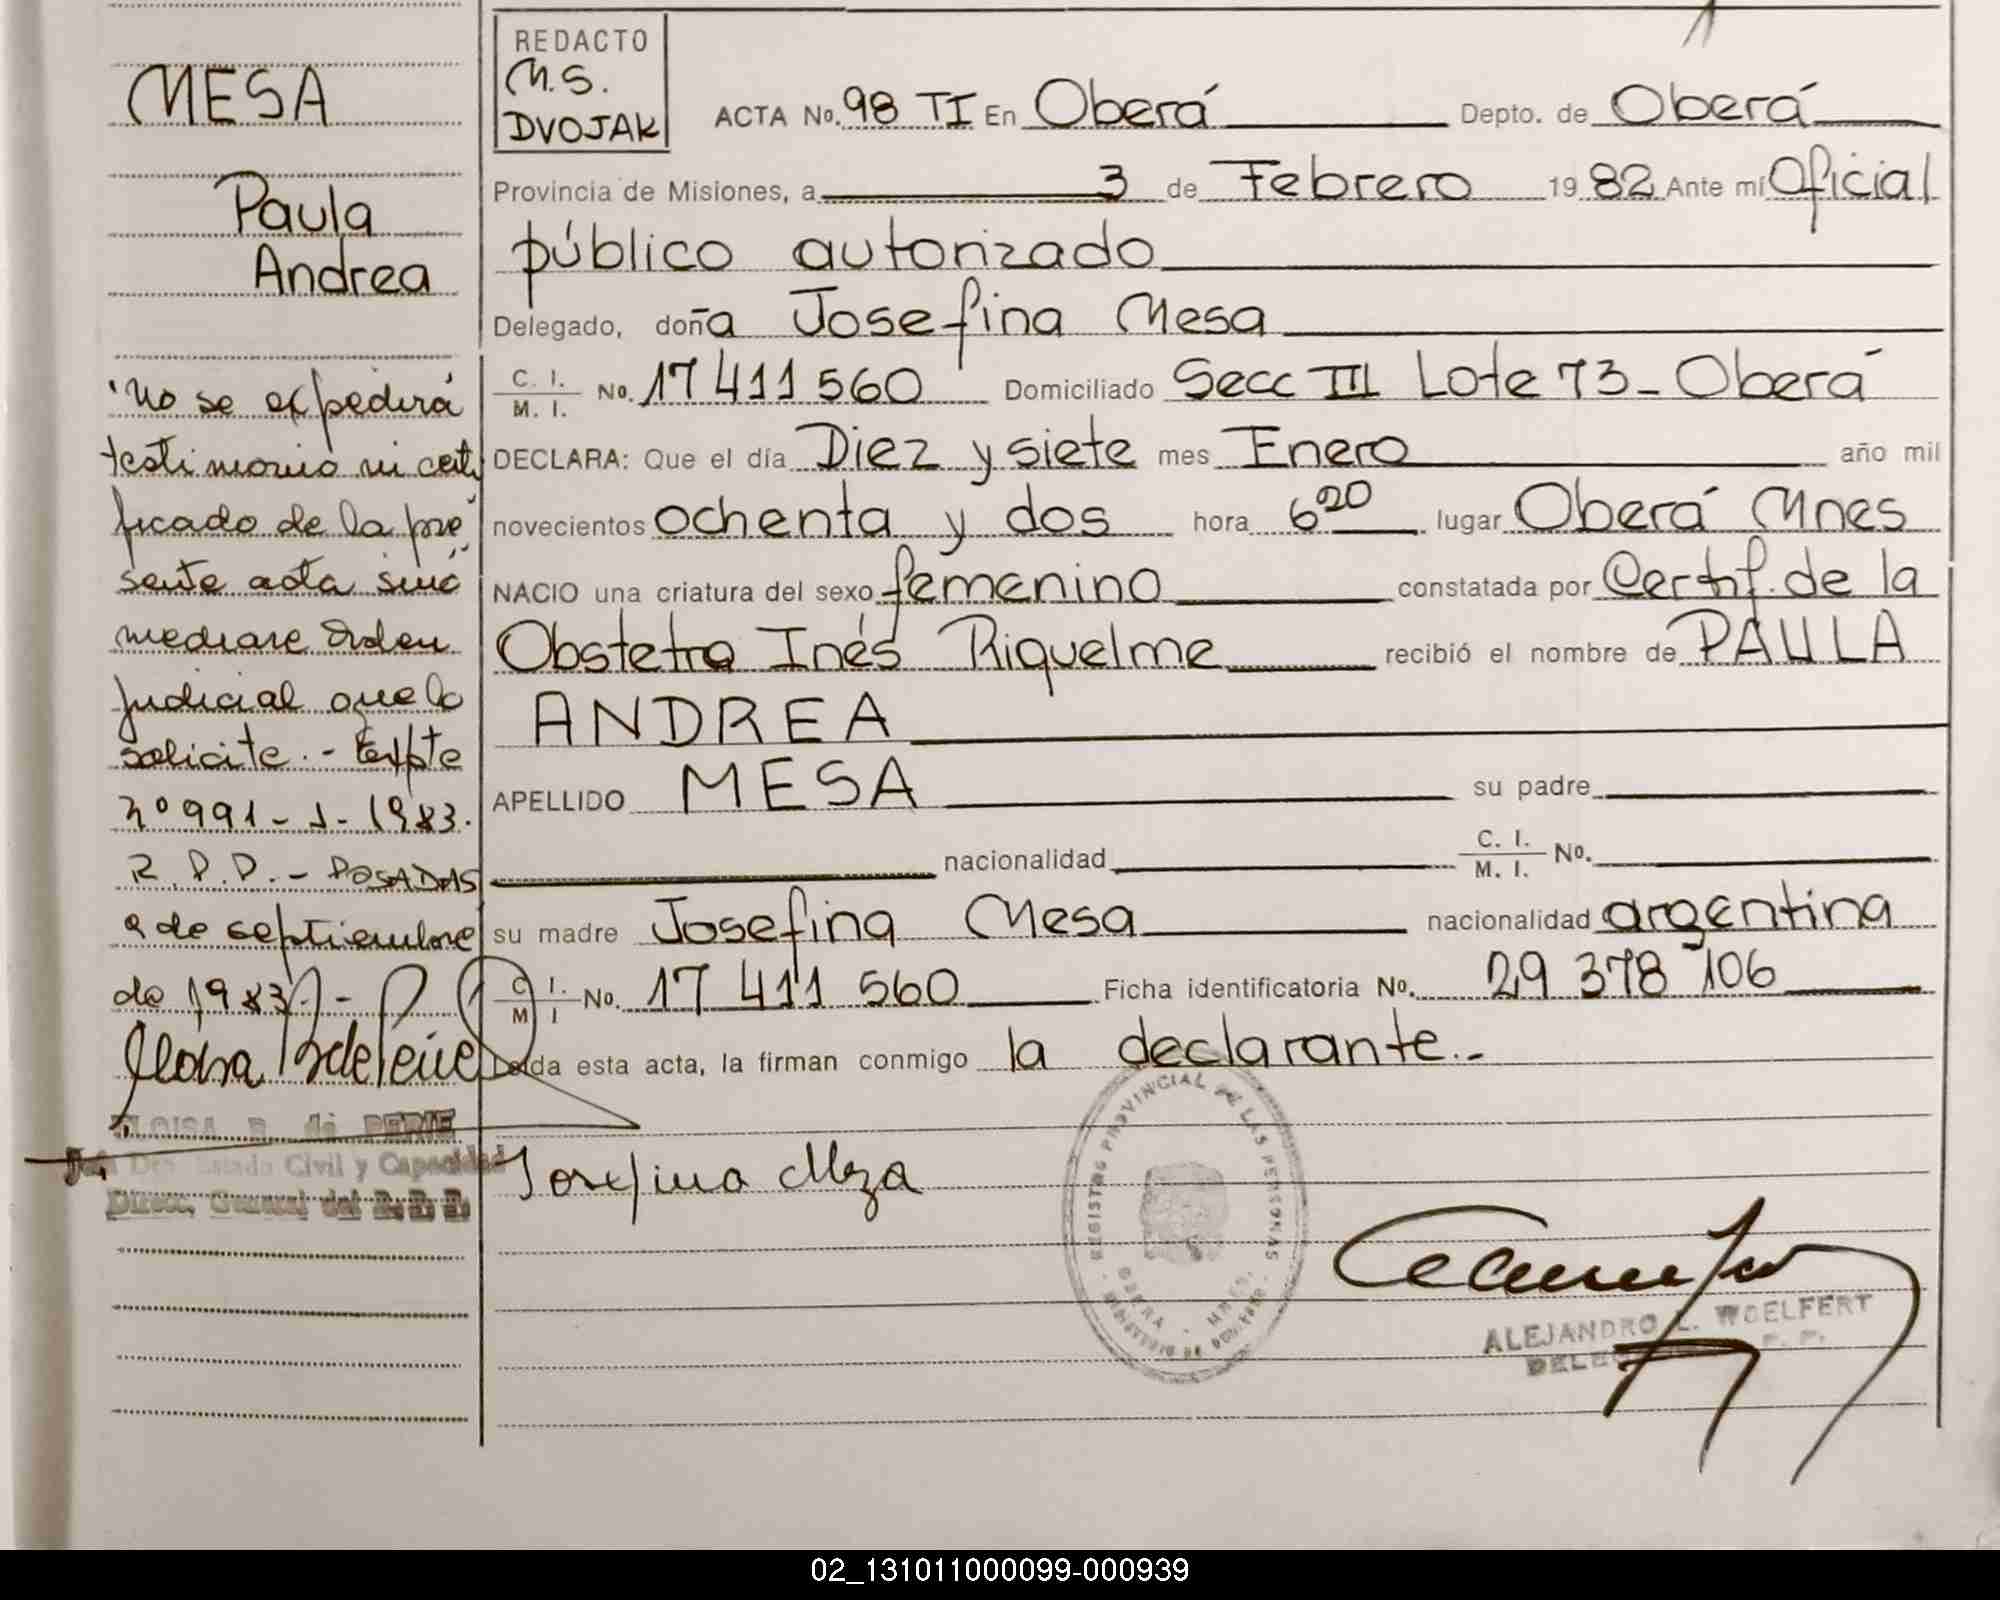 MESA
Paula
Andrea
"No se expedirá
testimonio ni certi
ficado de la pre
sente acta sinó
mediare orden
judicial que lo
solicite.- Expte
nº 991-J-1983.
R.P.P.- POSADAS
2 de septiembre
de 1983.-
ELOISA B. de PERIE
Jefa Dto. Estado Civil y Capacidad
Direcc. General del R.P.P.
REDACTO
M.S.
DVOJAK
ACTA No. 98 TI En Oberá Depto. de Oberá
Provincia de Misiones, a 3 de Febrero 1982 Ante mí Oficial
público autorizado
Delegado, doña Josefina Mesa
C. I. / M. I. No. 17 411 560 Domiciliado Secc III Lote 73 - Oberá
DECLARA: Que el día Diez y siete mes Enero año mil
novecientos ochenta y dos hora 6 20 lugar Oberá Mnes
NACIO una criatura del sexo femenino constatada por Certif. de la
Obstetra Inés Riquelme recibió el nombre de PAULA
ANDREA
APELLIDO MESA su padre
nacionalidad C. I. / M. I. No.
su madre Josefina Mesa nacionalidad argentina
C. I. / M. I. No. 17 411 560 Ficha identificatoria No. 29 378 106
Leída esta acta, la firman conmigo la declarante.-
Josefina Meza
REGISTRO PROVINCIAL DE LAS PERSONAS
OBERA - MNES.
MINISTERIO DE GOBIERNO
ALEJANDRO L. WOELFERT
02_131011000099-000939